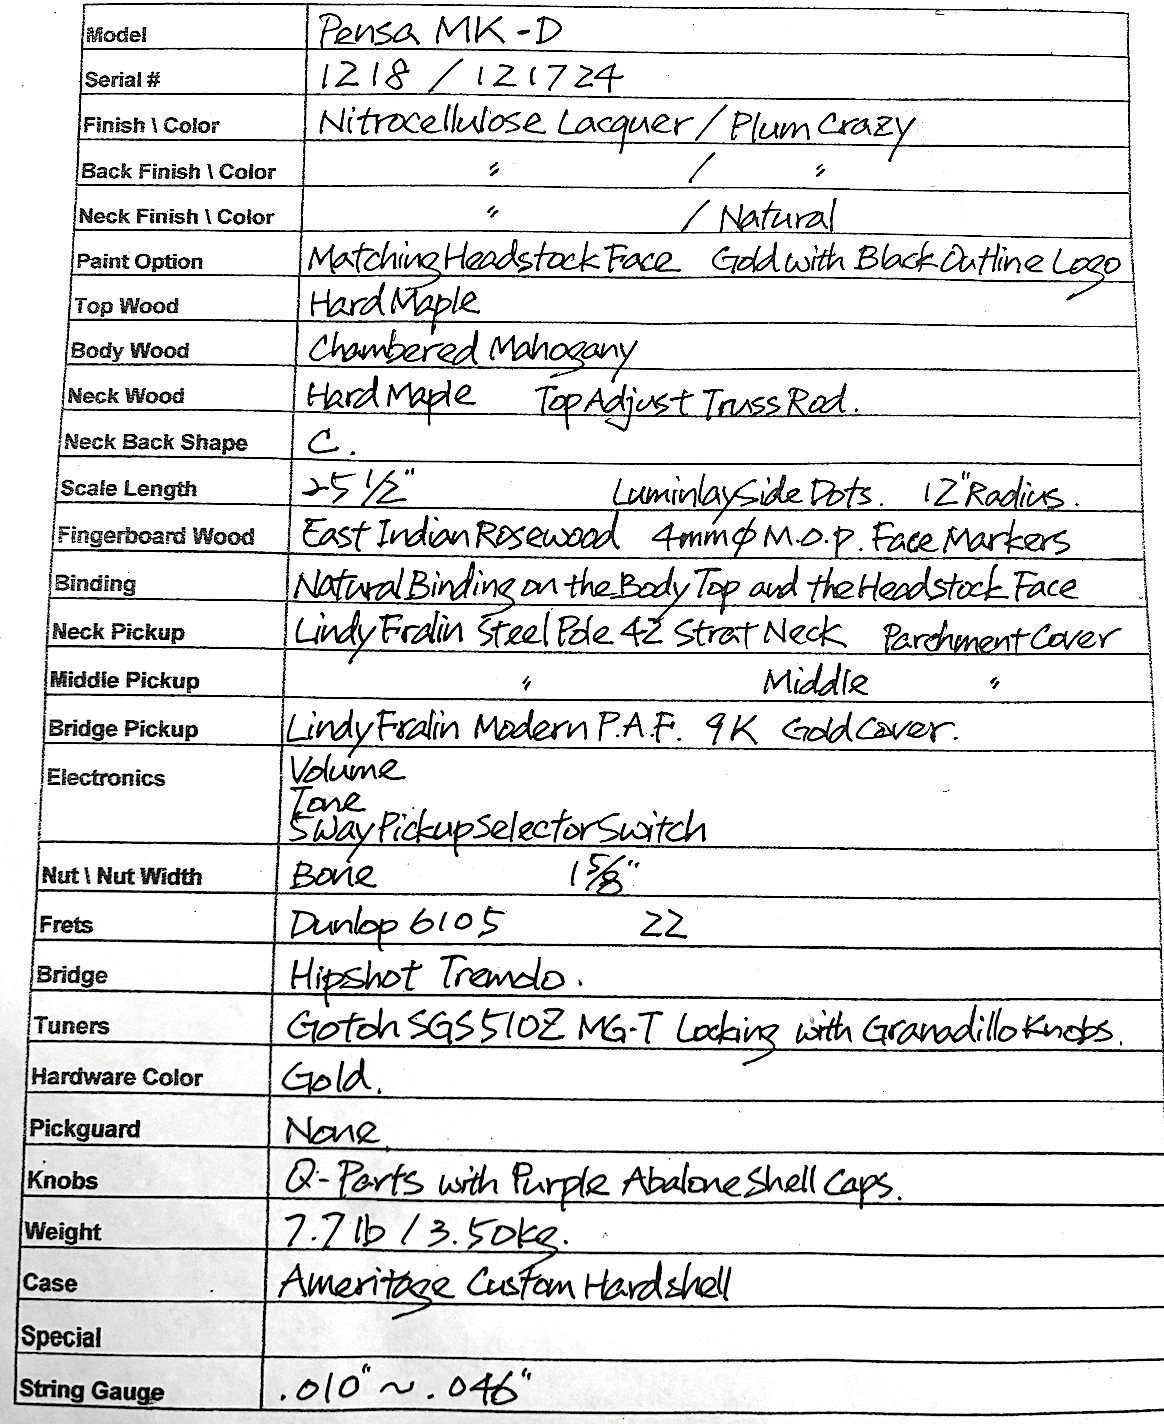 Model Pensa MK-D
Serial # 1218 / 121724
Finish \ Color Nitrocellulose Lacquer / Plum Crazy
Back Finish \ Color 〃 / 〃
Neck Finish \ Color 〃 / Natural
Paint Option Matching Headstock Face Gold with Black Outline Logo
Top Wood Hard Maple
Body Wood Chambered Mahogany
Neck Wood Hard Maple Top Adjust Truss Rod.
Neck Back Shape C.
Scale Length 25 1/2" Luminlay Side Dots. 12" Radius.
Fingerboard Wood East Indian Rosewood 4mmφ M.O.P. Face Markers
Binding Natural Binding on the Body Top and the Headstock Face
Neck Pickup Lindy Fralin Steel Pole 42 Strat Neck Parchment Cover
Middle Pickup 〃 Middle 〃
Bridge Pickup Lindy Fralin Modern P.A.F. 9K Gold Cover.
Electronics Volume
Tone
5 Way Pickup Selector Switch
Nut \ Nut Width Bone 1 5/8"
Frets Dunlop 6105 22
Bridge Hipshot Tremolo.
Tuners Gotoh SGS510Z MG-T Locking with Granadillo Knobs.
Hardware Color Gold.
Pickguard None.
Knobs Q-Parts with Purple Abalone Shell Caps.
Weight 7.7 lb / 3.50kg.
Case Ameritage Custom Hardshell
Special
String Gauge .010" ~ .046"